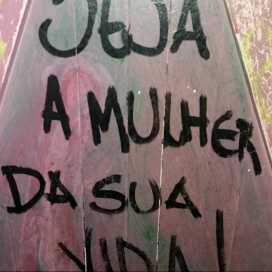 SEJA
A MULHER
DA SUA
VIDA!